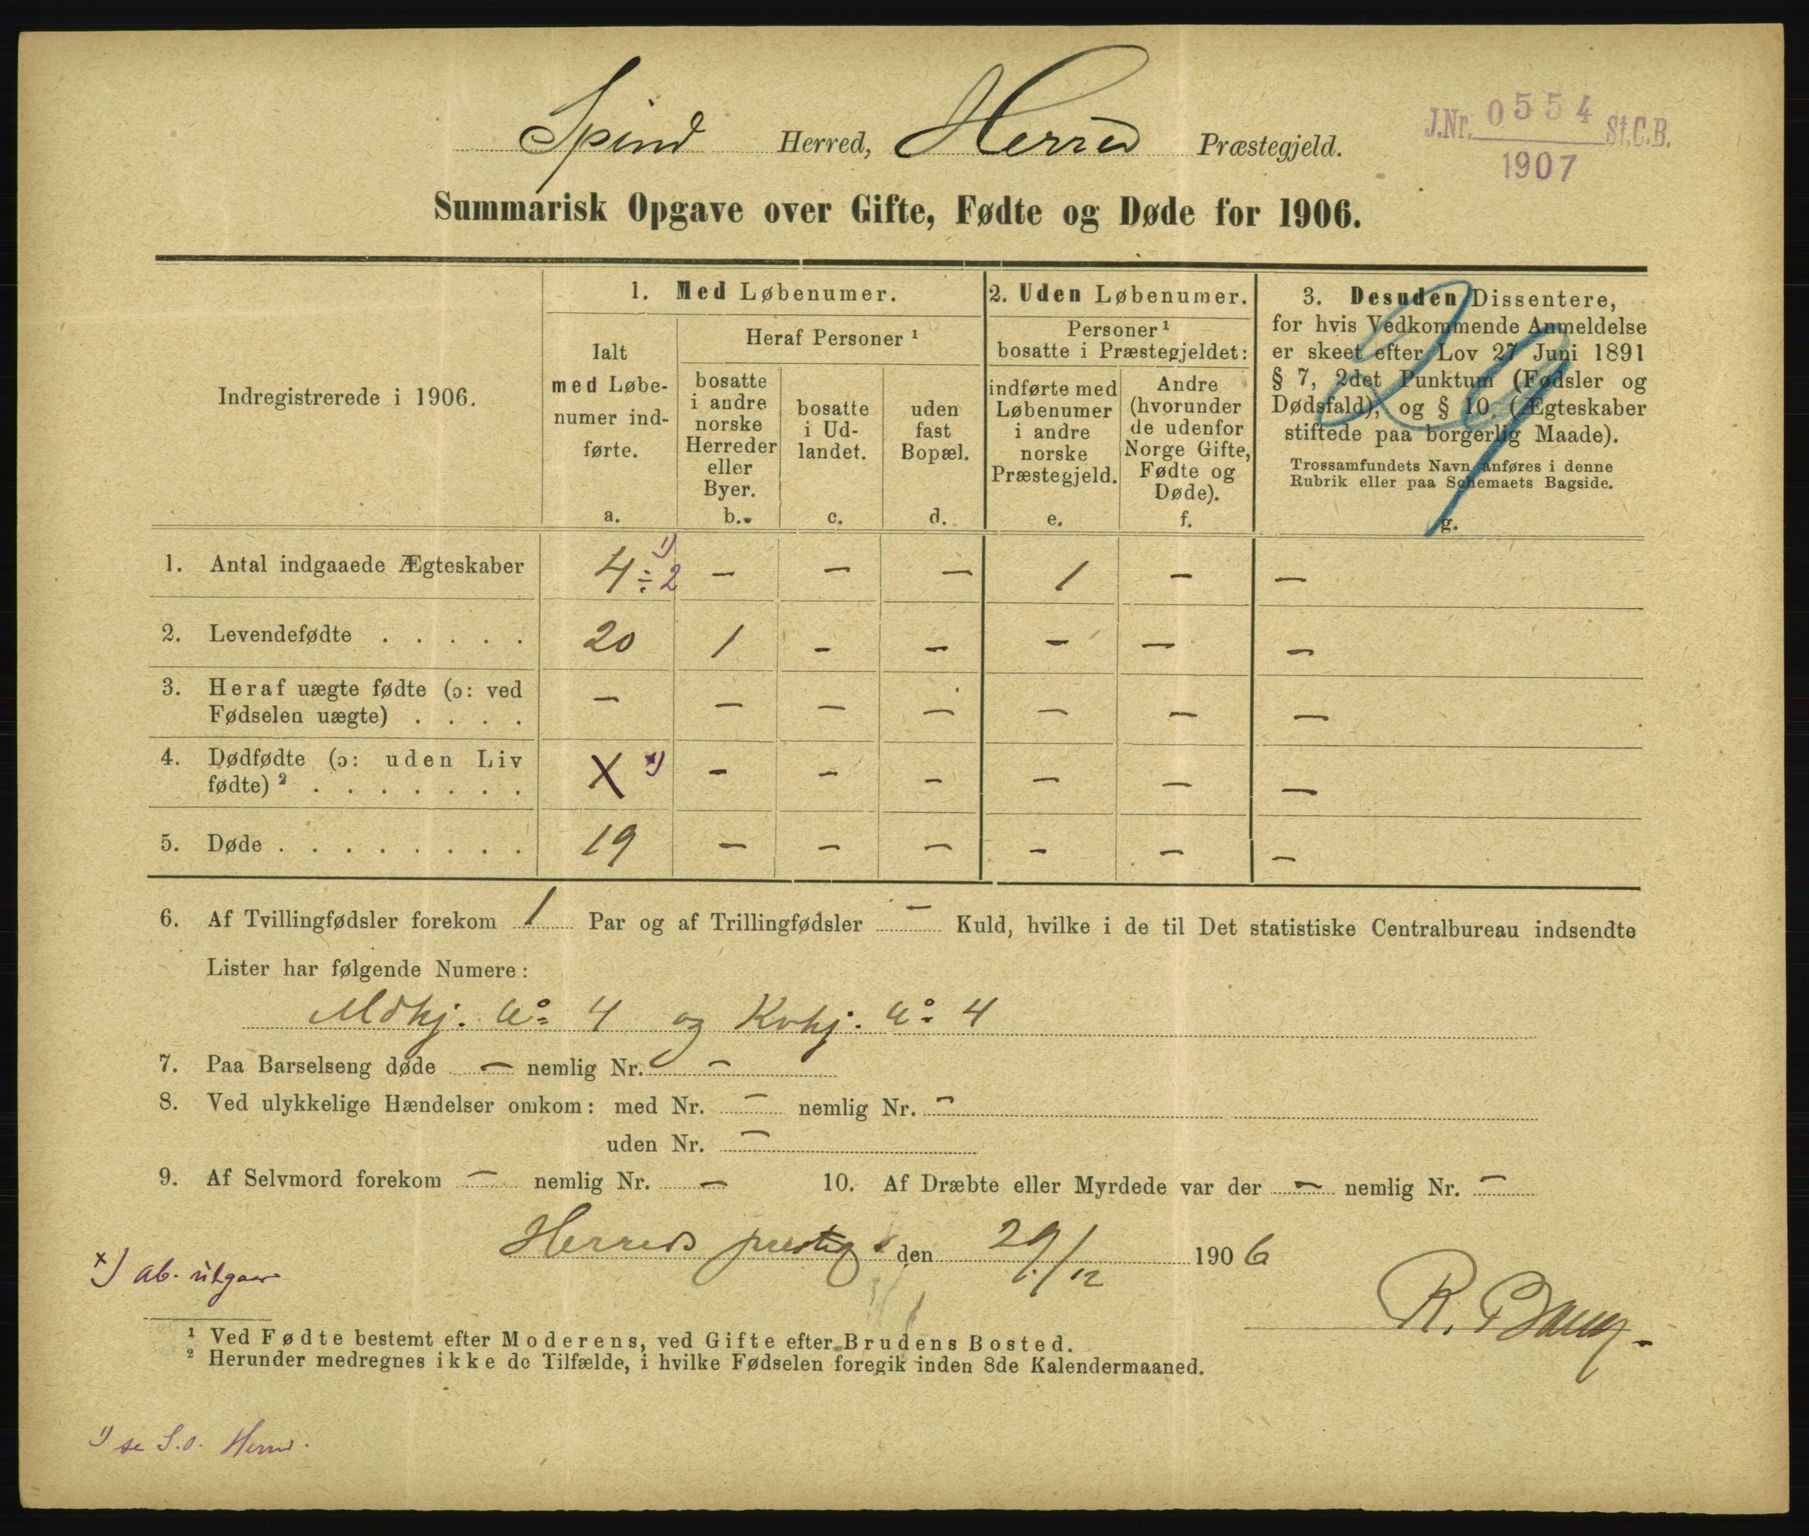 Spind Herred, Herred Præstegjeld.
J.Nr. 0554 St.C.B.
1907
Summarisk Opgave over Gifte, Fødte og Døde for 1906.
Indregistrerede i 1906.
1. Med Løbenumer.
Ialt
med Løbe-
numer ind-
førte.
a.
Heraf Personer ¹
bosatte
i andre
norske
Herreder
eller
Byer.
b.
bosatte
i Ud-
landet.
c.
uden
fast
Bopæl.
d.
2. Uden Løbenumer.
Personer ¹
bosatte i Præstegjeldet:
indførte med
Løbenumer
i andre
norske
Præstegjeld.
e.
Andre
(hvorunder
de udenfor
Norge Gifte,
Fødte og
Døde).
f.
3. Desuden Dissentere,
for hvis Vedkommende Anmeldelse
er skeet efter Lov 27 Juni 1891
§ 7, 2det Punktum (Fødsler og
Dødsfald), og § 10 (Ægteskaber
stiftede paa borgerlig Maade).
Trossamfundets Navn anføres i denne
Rubrik eller paa Schemaets Bagside.
g.
1. Antal indgaaede Ægteskaber 4 ÷ 2 ¹) – – – 1 – –
2. Levendefødte . . . . . 20 1 – – – – –
3. Heraf uægte fødte (ɔ: ved
Fødselen uægte) . . . . – – – – – – –
4. Dødfødte (ɔ: uden Liv
fødte) ² . . . . . . . X ×) – – – – – –
5. Døde . . . . . . . . 19 – – – – – –
6. Af Tvillingfødsler forekom 1 Par og af Trillingfødsler – Kuld, hvilke i de til Det statistiske Centralbureau indsendte
Lister har følgende Numere:
Mdkj. No 4 og Kvkj. No 4
7. Paa Barselseng døde – nemlig Nr. –
8. Ved ulykkelige Hændelser omkom: med Nr. – nemlig Nr. –
uden Nr. –
9. Af Selvmord forekom – nemlig Nr. – 10. Af Dræbte eller Myrdede var der – nemlig Nr. –
Herreds prestg den 29/12 1906
×) ab. utgaar
¹ Ved Fødte bestemt efter Moderens, ved Gifte efter Brudens Bosted.
² Herunder medregnes ikke de Tilfælde, i hvilke Fødselen foregik inden 8de Kalendermaaned.
¹) se S.o. Herred.